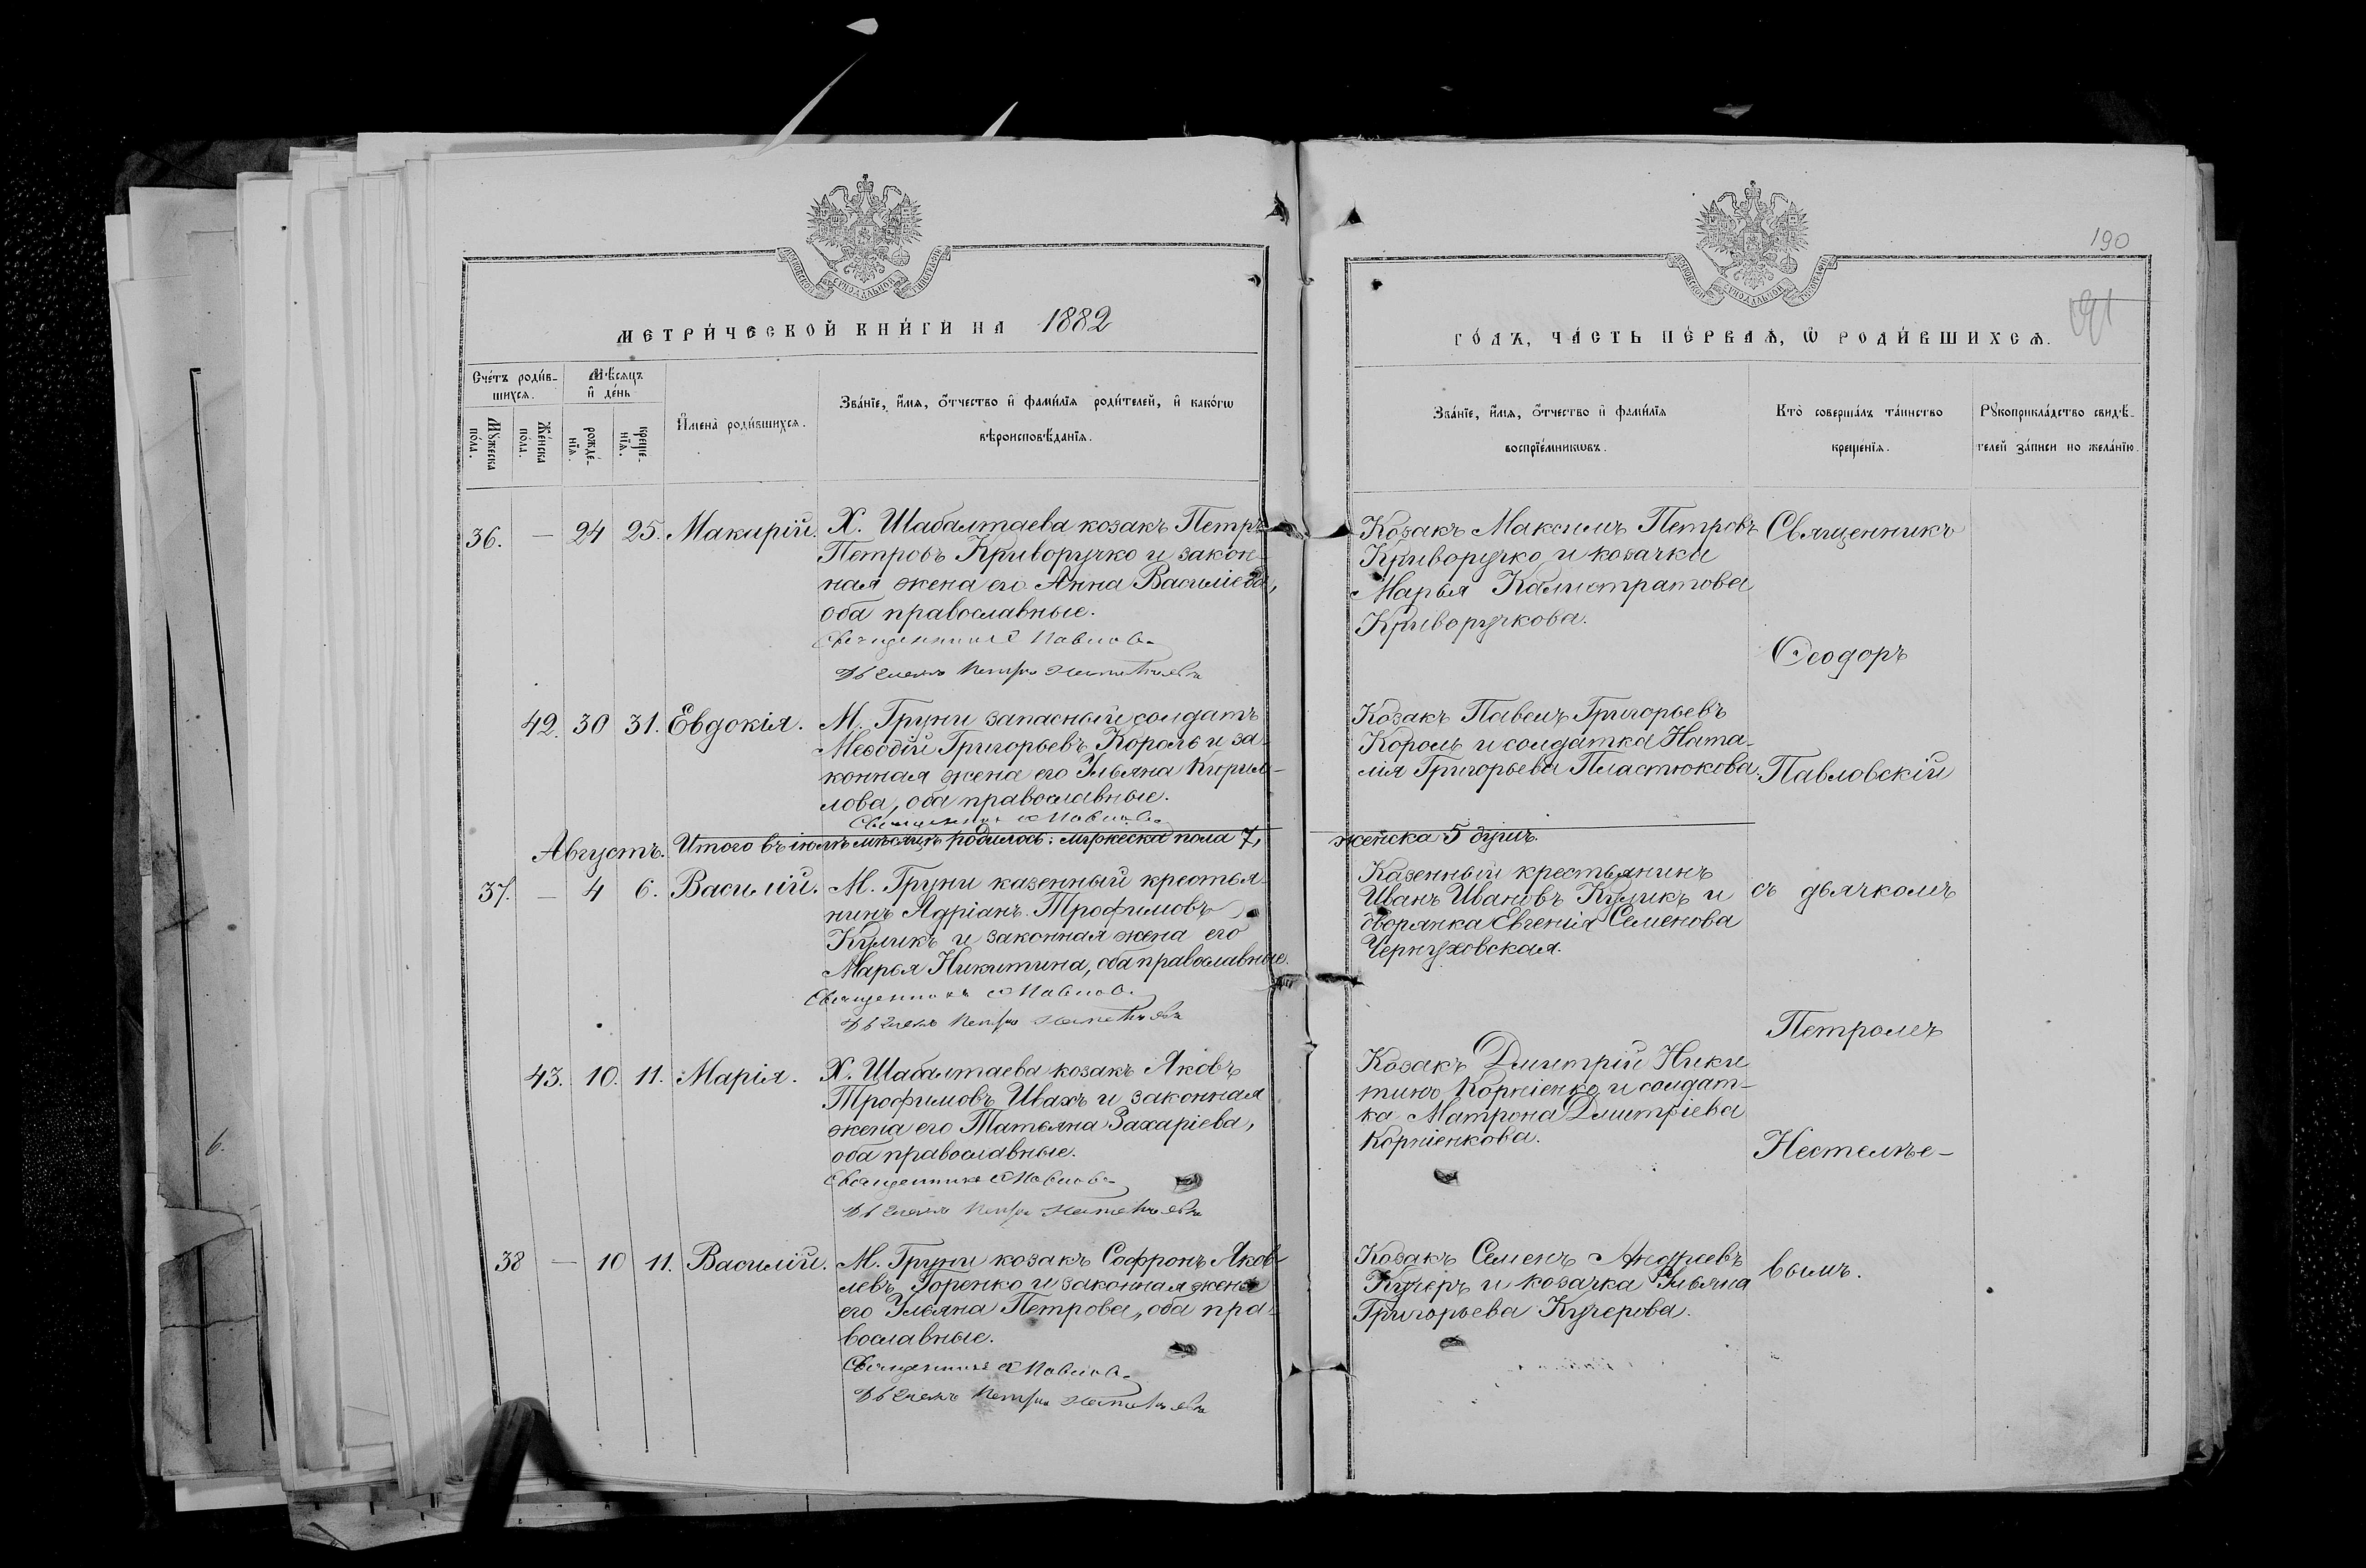 190
191
МЕТРИ́ЧЕСКОЙ КНИ́ГИ НА 1882
ГО́ДЪ, ЧА́СТЬ ПЕ́РВАѦ, Ѡ҆ РОДИ́ВШИХСѦ.
Сче́тъ роди́в-
шихсѧ.
Мꙋ́жеска
по́ла.
Же́нска
по́ла.
Мѣ́сѧцъ
и҆ де́нь
рожде́-
нїѧ.
креще́-
нїѧ.
И҆мена̀ роди́вшихсѧ.
Зва́нїе, и҆́мѧ, ѻ҆́тчество и҆ фами́лїѧ роди́телей, и҆ како́гѡ
вѣроисповѣ́данїѧ.
Зва́нїе, и҆́мѧ, ѻ҆́тчество и҆ фами́лїѧ
воспрїе́мникѡвъ.
Кто̀ соверша́лъ та́инство
креще́нїѧ.
Рꙋкоприкла́дство свидѣ́-
телей за́писи по жела́нїю.
36. — 24 25. Макарій.
Х. Шабалтаева козакъ Петръ
Петровъ Криворучко и закон-
ная жена его Анна Васильева,
оба православные.
Священникъ Ѳ Павловс
Дьячекъ Петръ Нестелѣевъ
Козакъ Максимъ Петровъ
Криворучко и козачка
Марья Калистратова
Криворучкова.
Священникъ
Ѳеодоръ
42. 30 31. Евдокія.
М. Груни запасный солдатъ
Меѳодій Григорьевъ Король и за-
конная жена его Ульяна Кирил-
лова, оба православные.
Священникъ Ѳ Павловс
Козакъ Павелъ Григорьевъ
Король и солдатка Ната-
лія Григорьева Пластюкова.
Павловскій
Августъ. Итого въ іюлѣ мѣсяцѣ родилось: мужеска пола 7,
женска 5 душъ.
37. — 4 6. Василій.
М. Груни казенный крестья-
нинъ Адріанъ Трофимовъ
Куликъ и законная жена его
Марья Никитина, оба православные.
Священникъ Ѳ Павловс
Дьячекъ Петръ Нестелѣевъ
Казенный крестьянинъ
Иванъ Ивановъ Куликъ и
дворянка Евгенія Семенова
Чернуховская.
съ дьячкомъ
Петромъ
43. 10. 11. Марія.
Х. Шабалтаева козакъ Яковъ
Трофимовъ Ивахъ и законная
жена его Татьяна Захаріева,
оба православные.
Священникъ Ѳ Павловс
Дьячекъ Петръ Нестелѣевъ
Козакъ Димитрій Ники
тинъ Корніенко и солдат-
ка Матрона Димитріева
Корніенкова.
Нестелѣе-
38 — 10 11. Василій.
М. Груни козакъ Софронъ Яков-
левъ Горенко и законная жена
его Ульяна Петрова, оба пра-
вославные.
Священникъ Ѳ Павловс
Дьячекъ Петръ Нестелѣевъ
Козакъ Семенъ Андреевъ
Кучеръ и козачка Ульяна
Григорьева Кучерова.
вымъ.
6.